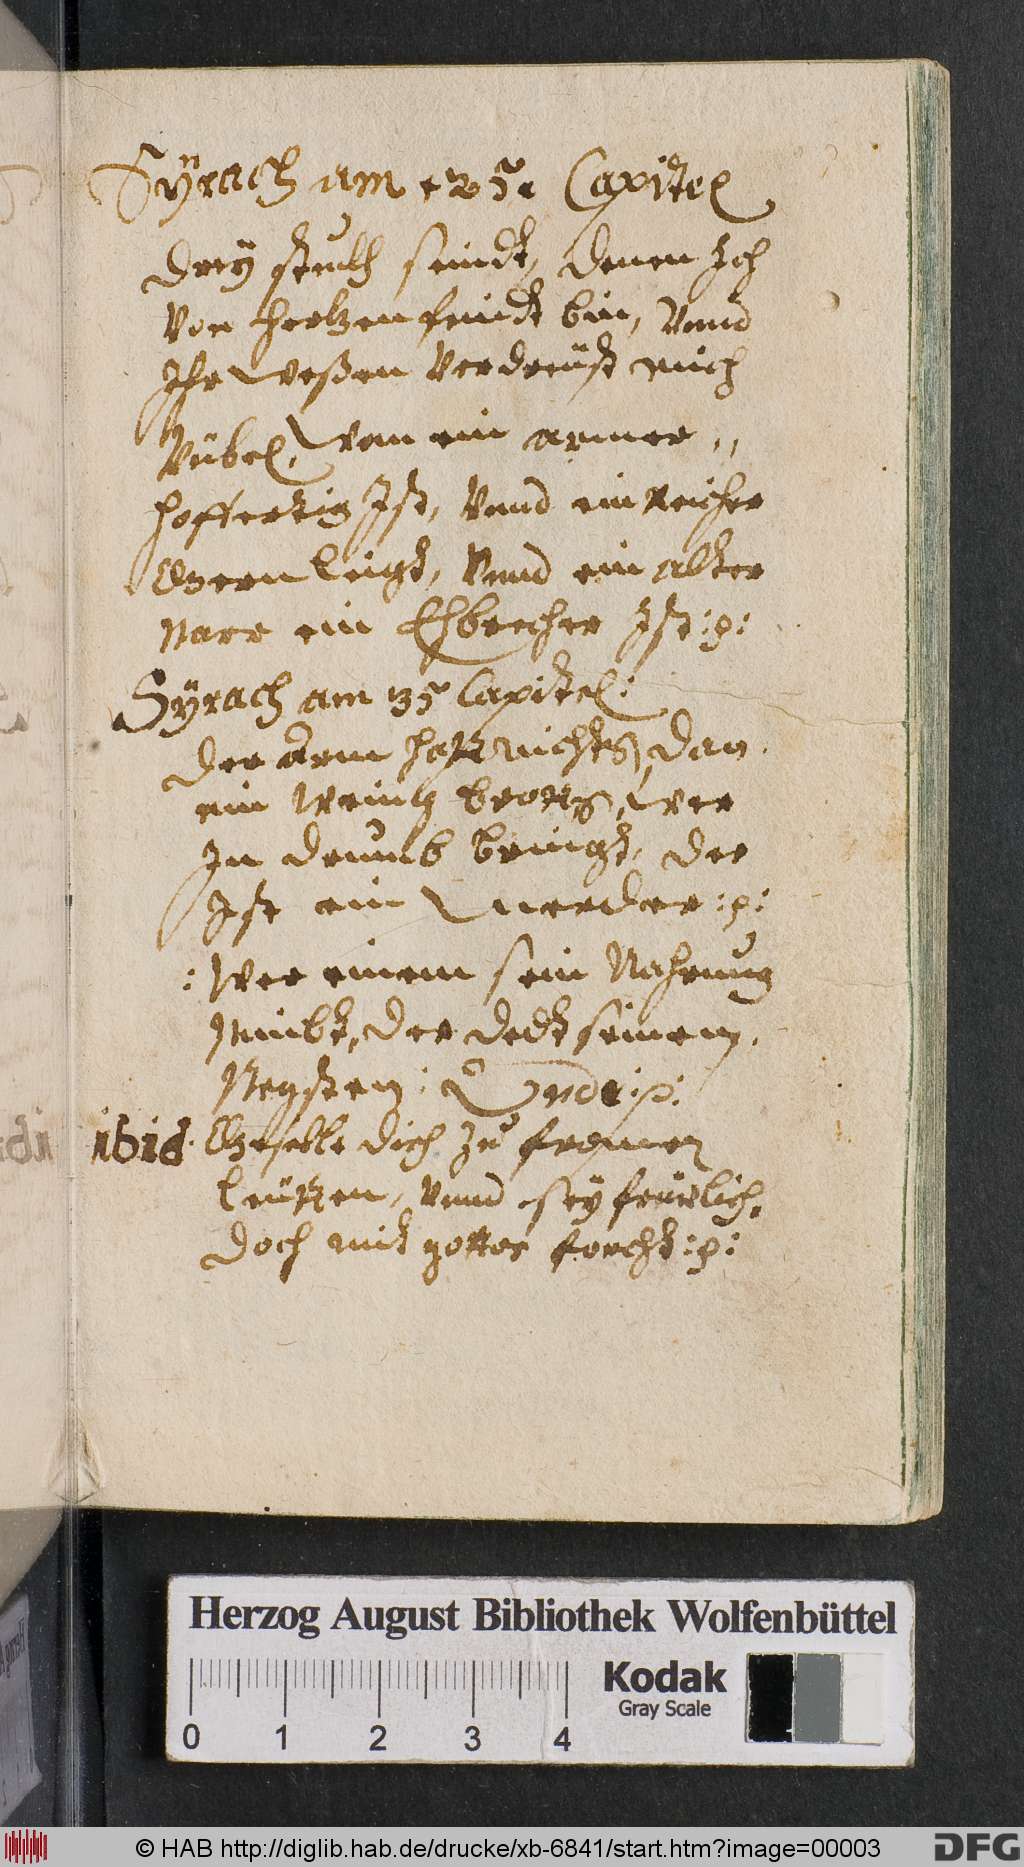 Sÿrach am 25. Capitel
Dreÿ stuckh seindt, denen Ich
Von Hertzen feindt bin, Vnnd
Ihr weßen Verdreüst mich
Vübel, wan ein armer „
hoffertig Ist, Vnnd ein Reicher
Gern leigt, Vnnd ein alter
Narr ein Ehbrecher Ist :p:
Sÿrach am 35 Capitel:
Der Arm hatt nichts, dan
ein wenig brotts, wer
In drumb bringt, der
Ist ein Mörder :p:
: Wer einem sein Nahrung
Nimbt, der dedt seinem
Negsten :
ibid. Geselle dich zu fromen
leütten, Vnnd seÿ frölich,
doch mit gottes forcht :p:
Herzog August Bibliothek Wolfenbüttel
Kodak
Gray Scale
0 1 2 3 4
© HAB http://diglib.hab.de/drucke/xb-6841/start.htm?image=00003
DFG